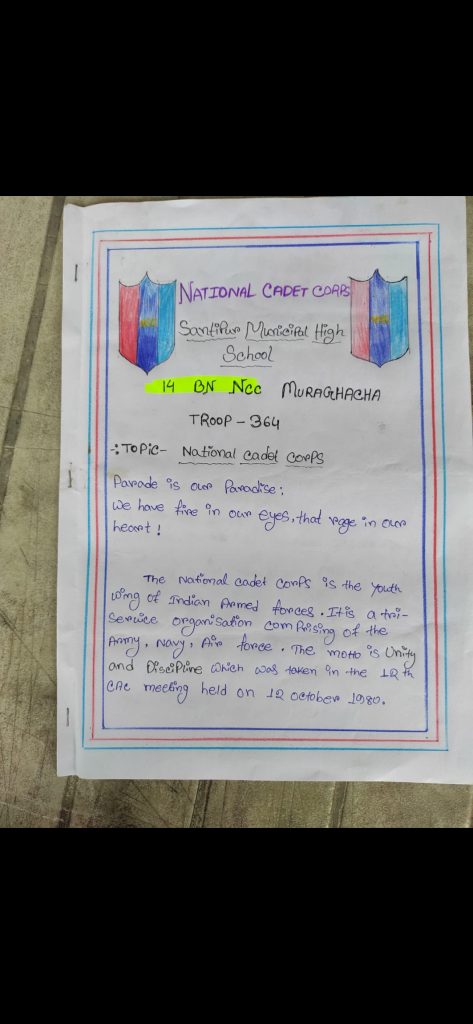 NATIONAL CADET CORPS
Santipur Municipal High
School
14 BN NCC MURAGHACHA
TROOP - 364
-: TOPIC - National cadet corps
Parade is our Paradise;
we have fire in our eyes, that rage in our
heart!
The National cadet corps is the youth
wing of Indian Armed forces. It is a tri-
service organisation comprising of the
Army, Navy, Air force. The motto is Unity
and Discipline which was taken in the 12th
CAC meeting held on 12 october 1980.